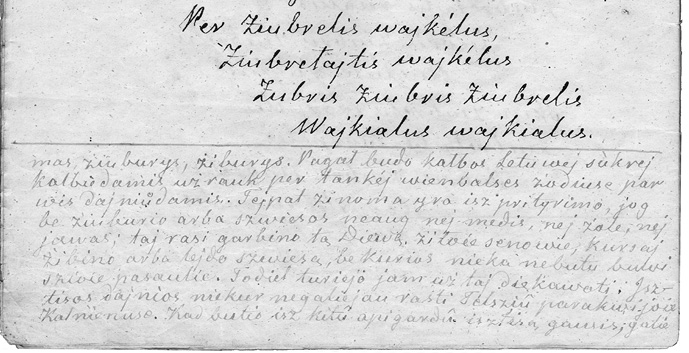 Per Ziubrelis wajkélus,
Ziubretajtis wajkélus
Zubris Ziubris Ziubrelis
Wajkialus wajkialus.
mas, ziuburys, żiburys. Pagał budo kałbos Letuwej sukrej
kałbedamis użrauk per tankéj wienbalses żodiuse par
wis dajnůdamis. Tejpat żinoma yra isz prityrimo, jog
be żiuburio arba szwiesos neaug nej medis, nej żole, nej
jawas; taj rasi garbino tą Diewą, żiłoie senowie, kursaj
żibino arba lejdo szwiesą, be kurios nieka nebutu buwi
sziöie pasaulie. Todieł turiejo jam uż taj diekawoti. Isz-
tisos dajnios niekur negaliejau rasti Telsziu parakwijoie
Kalnienuse. Kad butio isz kitů apigardů isztisą gawis, galie